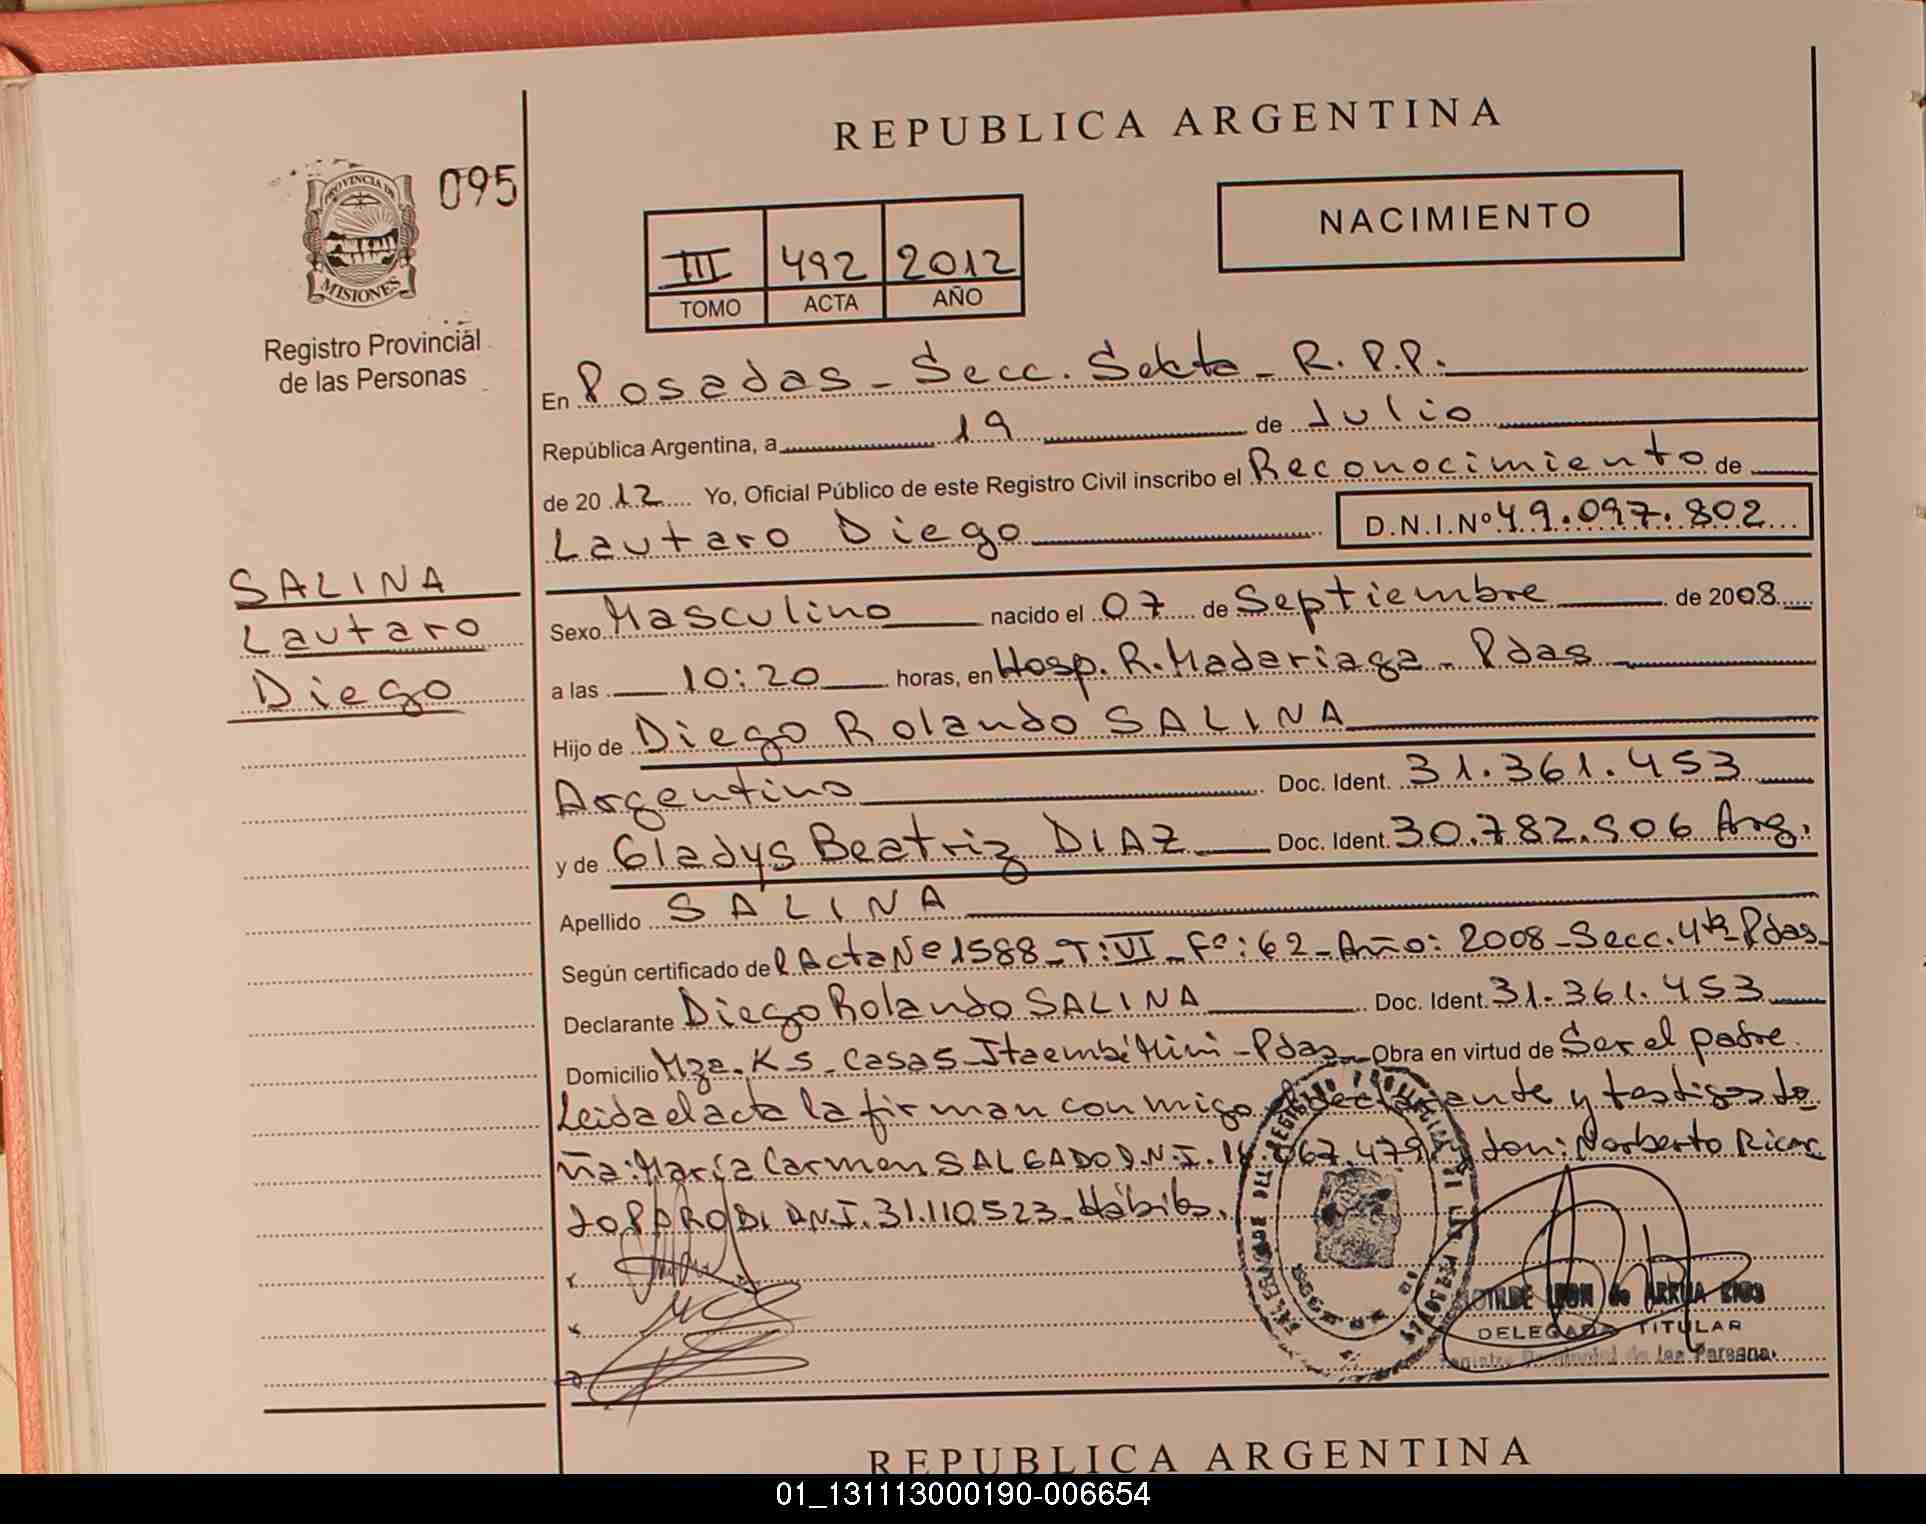 REPUBLICA ARGENTINA
PROVINCIA DE
MISIONES
095
Registro Provincial
de las Personas
NACIMIENTO
III 492 2012
TOMO ACTA AÑO
En Posadas - Secc. Sexta - R.P.P.
República Argentina, a 19 de Julio
de 2012 Yo, Oficial Público de este Registro Civil inscribo el Reconocimiento de
Lautaro Diego D.N.I. Nº 49.097.802
SALINA
Lautaro
Diego
Sexo Masculino nacido el 07 de Septiembre de 2008
a las 10:20 horas, en Hosp. R. Madariaga - Pdas
Hijo de Diego Rolando SALINA
Argentino Doc. Ident. 31.361.453
y de Gladys Beatriz DIAZ Doc. Ident. 30.782.906 Arg.
Apellido SALINA
Según certificado del Acta Nº 1588 - T: VI - Fº: 62 - Año: 2008 - Secc. 4ta - Pdas -
Declarante Diego Rolando SALINA Doc. Ident. 31.361.453
Domicilio Mza. K S - Casa 5 - Itaembé Miní - Pdas - Obra en virtud de Ser el padre
Leida el acta la firman conmigo el declarante y testigos do
ña: María Carmen SALGADO D.N.I. 14.067.479 y don: Norberto Ricar
do PARODI D.N.I. 31.110.523 - Hábiles.
DELEGADA TITULAR
Registro Provincial de las Personas
REPUBLICA ARGENTINA
01_131113000190-006654